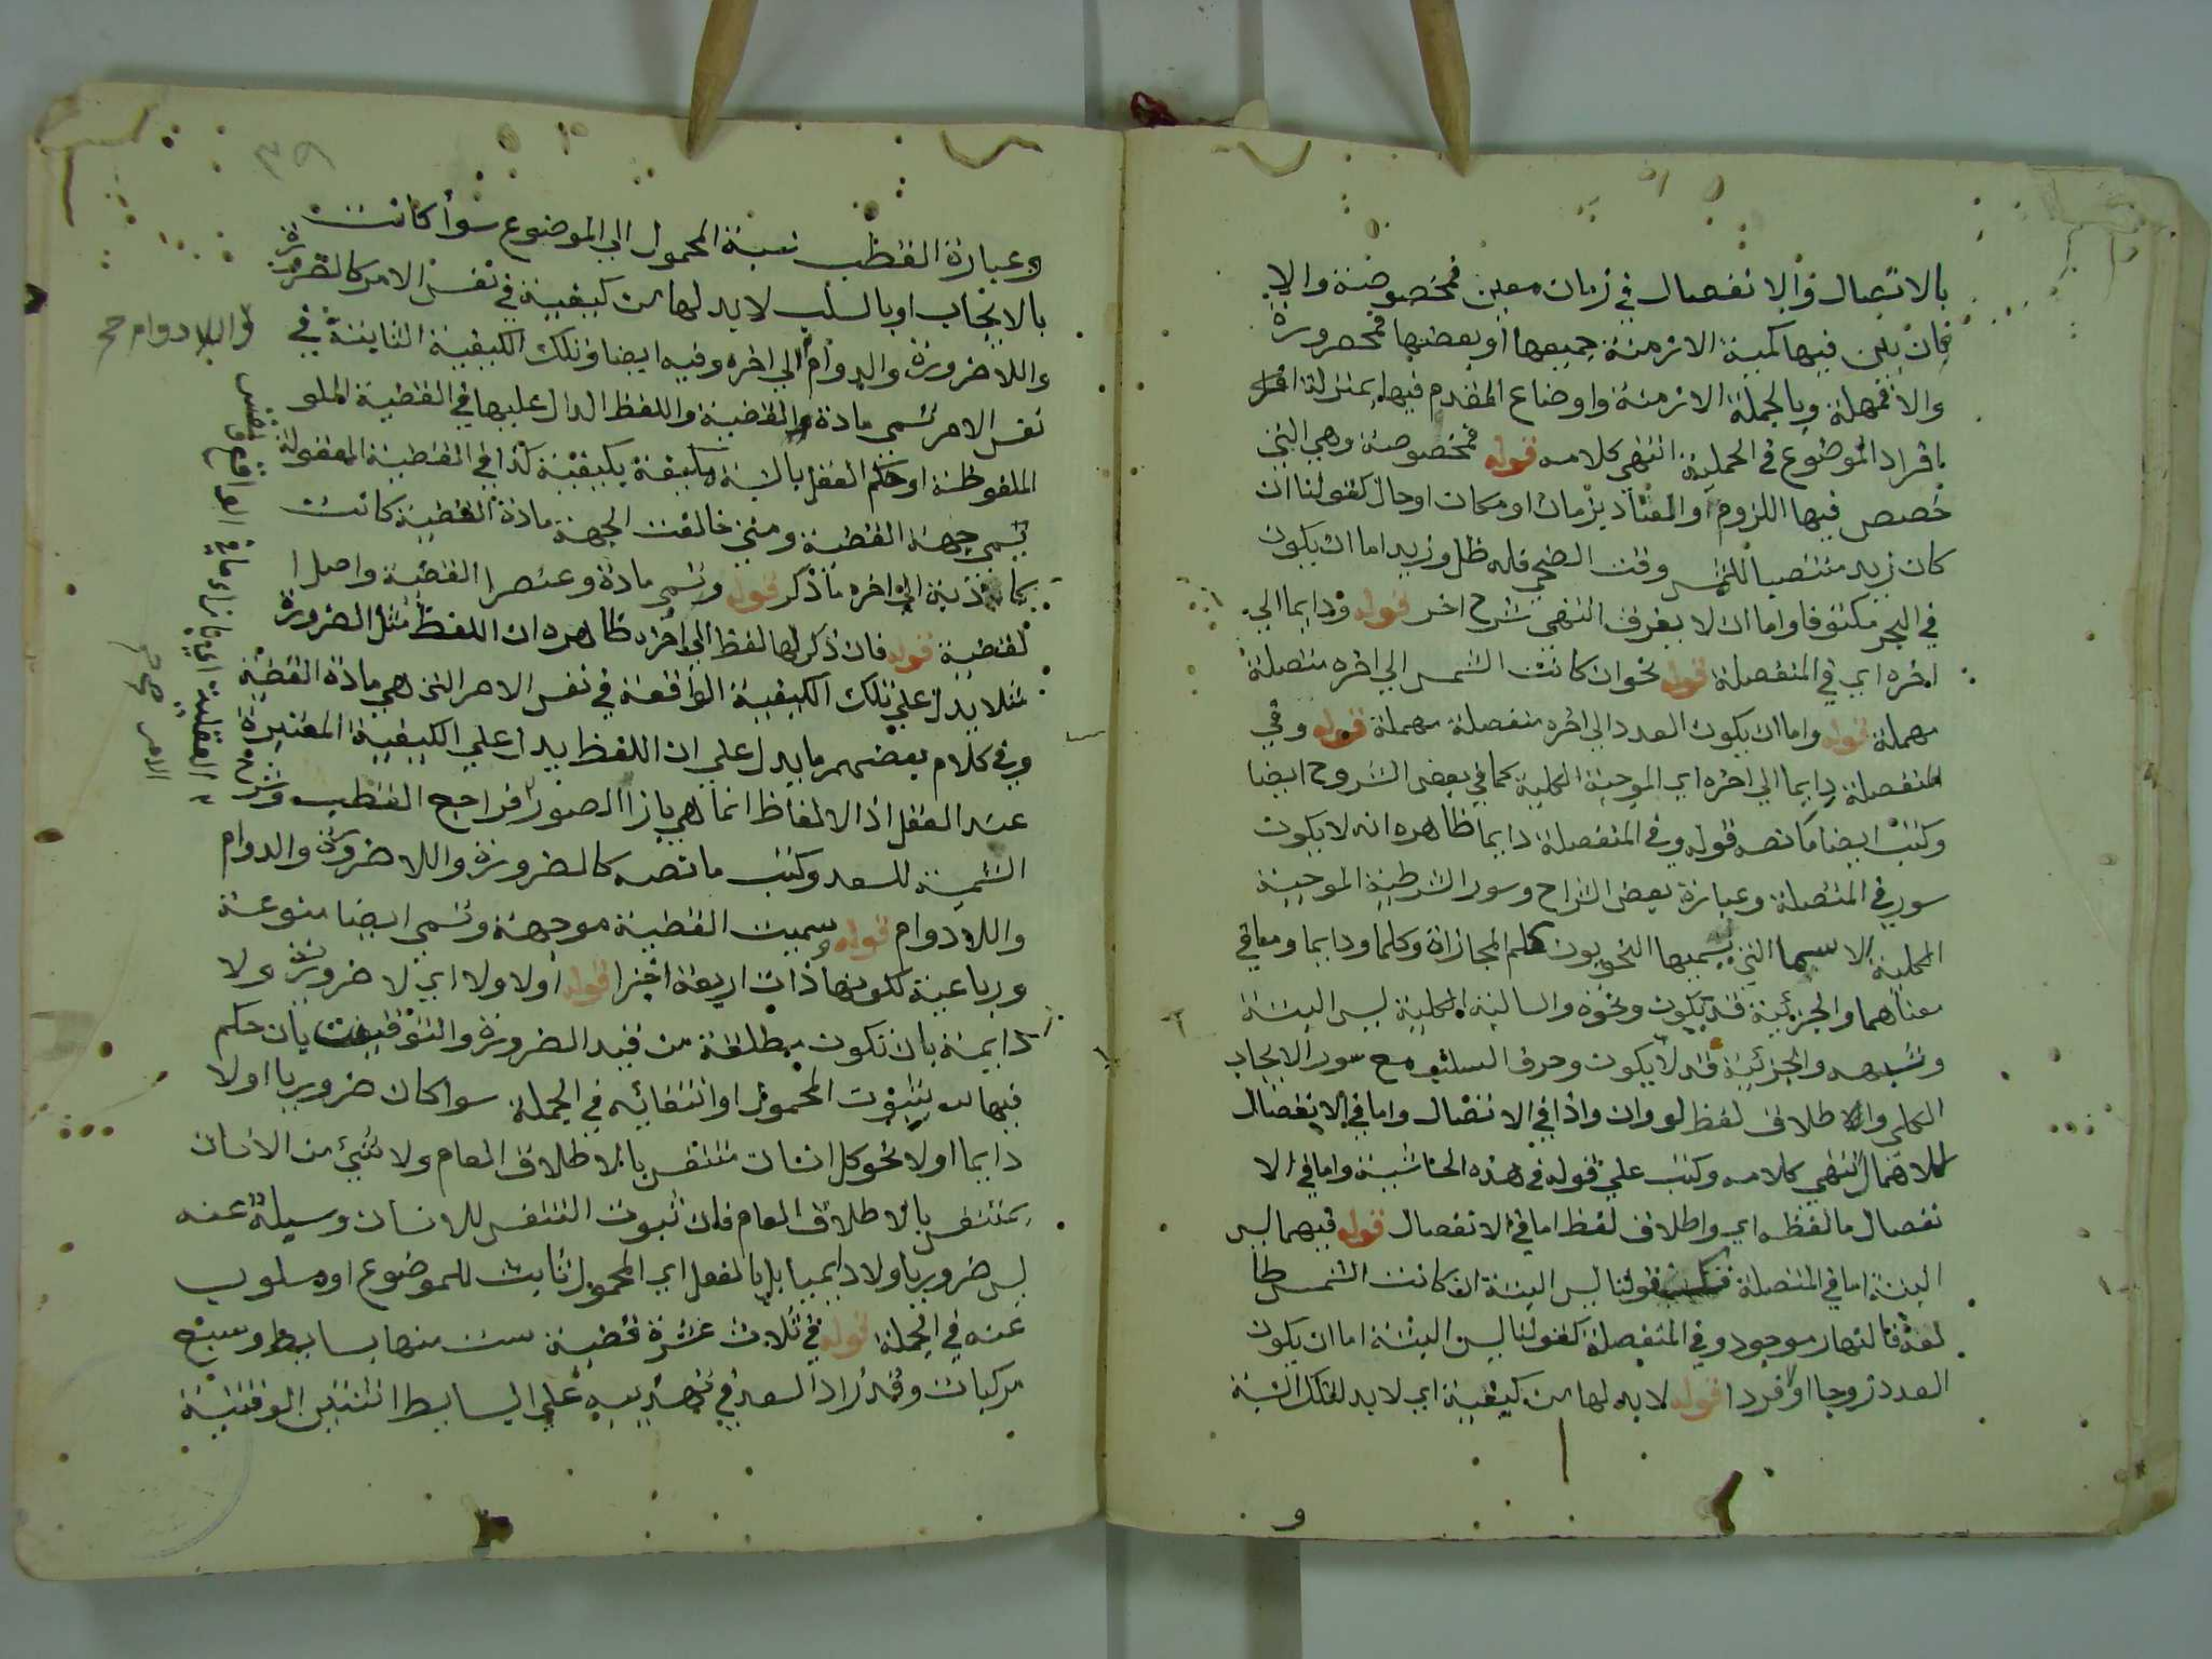 بالاتصال والانفصال في زمان معين فمخصوصة والا
فان بين فيها كمية الازمنة جميعها او بعضها فمحصورة
والا فمهملة وبالجملة الازمنة واوضاع المقدم فيها بمنزلة
افراد الموضوع في الحملية انتهى كلامه قوله فمخصوصة وهي التي
خصص فيها اللزوم او العناد بزمان او مكان او حال كقولنا ان
كان زيد منتصبا للشمس وقت الضحى فله ظل وزيد اما ان يكون
في البحر مكتوفا واما ان لا يغرق انتهى شرح اخر قوله ودايما الى
اخره اي في المنفصلة قوله نحو ان كانت الشمس الى اخره متصلة
مهملة قوله واما ان يكون العدد الى اخره منفصلة مهملة قوله وفي
المنفصلة دايما الى اخره اي الموجبة الكلية كما في بعض الشروح ايضا
وكتب ايضا ما نصه قوله وفي المنفصلة دايما ظاهره انه لا يكون
سور في المتصلة وعبارة بعض الشراح وسور الشرطية الموجبة
الكلية الاسما التي يسميها النحويون كلم المجازاة وكلما ودايما وما في
معناهما والجزئية قد يكون ونحوه والسالبة الكلية ليس البتة
وشبهه والجزئية قد لا يكون وحرف السلب مع سور الايجاب
الكلي والاطلاق لفظ لو وان واذا في الاتصال واما في الانفصال
للاهمال انتهى كلامه وكتب على قوله في هذه الحاشية واما في الا
نفصال ما لفظه اي واطلاق لفظ اما في الانفصال قوله فيهما ليس
البتة اما في المتصلة فكقولنا ليس البتة ان كانت الشمس طا
لعة فالنهار موجود وفي المنفصلة كقولنا ليس البتة اما ان يكون
العدد زوجا او فردا قوله لا بد لها من كيفية اي لا بد لتلك النسبة
و
وعبارة القطب نسبة المحمول الى الموضوع سوأ كانت
بالايجاب او بالسلب لا بد لها من كيفية في نفس الامر كالضرورة
واللاضرورة والدوام الى اخره وفيه ايضا وتلك الكيفية الثابتة في
واللادوام صح
نفس الامر تسمى مادة القضية واللفظ الدال عليها في القضية
الملفوظة او حكم العقل بالنسبة مكيفة بكيفية كذا في القضية المعقولة
تسمى جهة القضية ومتى خالفت الجهة مادة القضية كانت
كاذبة الى اخره ما ذكر قوله وتسمى مادة وعنصرا القضية واصل ا
لقضية قوله فان ذكر لها لفظ الى اخره ظاهره ان اللفظ مثل الضرورة
مثلا يدل على تلك الكيفية الواقعة في نفس الامر التي هي مادة القضية
وفي كلام بعضهم ما يدل على ان اللفظ يدل على الكيفية المعتبرة
عند العقل اذ الالفاظ انما هي بازا الصور فراجع القطب وشرح
الشمسية للسعد وكتب ما نصه كالضرورة واللاضرورة والدوام
واللادوام قوله وسميت القضية موجهة وتسمى ايضا منوعة
ورباعية لكونها ذات اربعة اجزا قوله اولا ولا اي لا ضرورية ولا
دايمة بان تكون مطلقة من قيد الضرورة والتوقيت بان حكم
فيها بثبوت المحمول او انتفائه في الجملة سوا كان ضروريا اولا
دايما اولا نحو كل انسان متنفس بالاطلاق العام ولا شيئ من الانسان
بمتنفس بالاطلاق العام فان ثبوت التنفس للانسان وسلبه عنه
ليس ضروريا ولا دايميا بل بالفعل اي المحمول ثابت للموضوع او مسلوب
عنه في الجملة قوله في ثلاث عشرة قضية ست منها بسايط وسبع
مركبات وقد زاد السعد في تهذيبه على البسايط اثنتين الوقتية